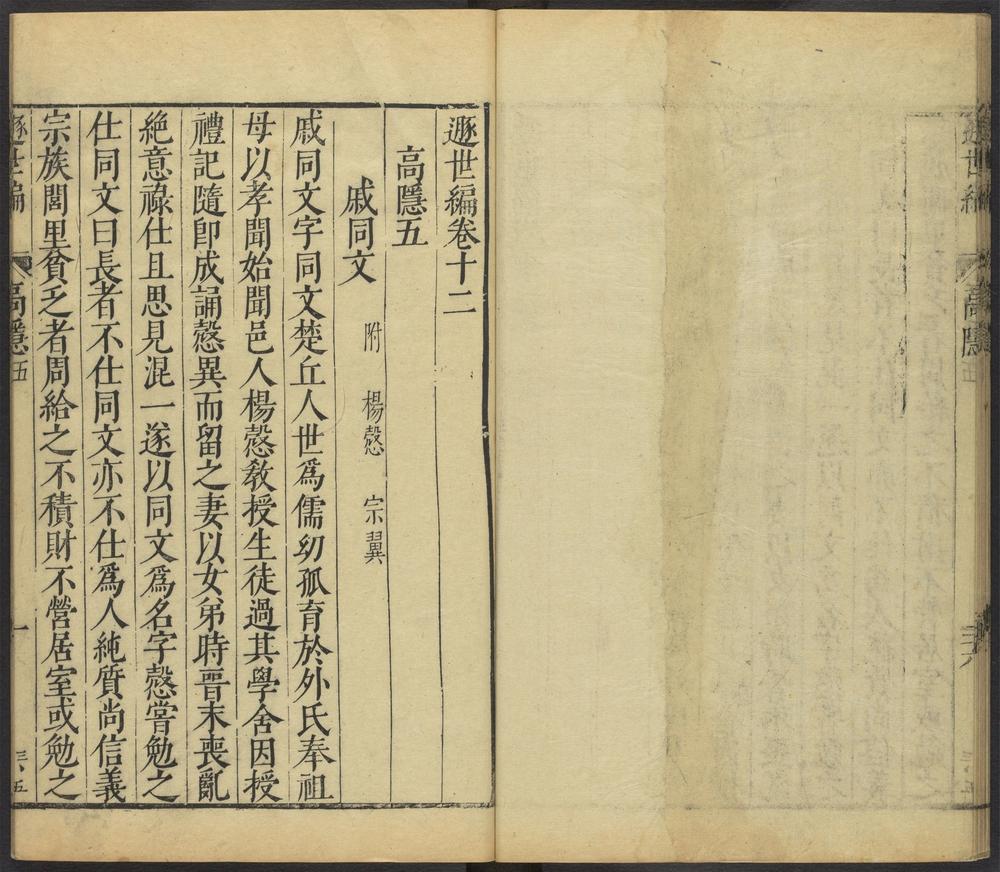 遯世編卷十二
高隱五
戚同文 附 楊慤 宗翼
戚同文字同文楚丘人世爲儒幼孤育於外氏奉祖
母以孝聞始聞邑人楊慤敎授生徒過其學舍因授
禮記隨卽成誦慤異而留之妻以女弟時晉末喪亂
絶意祿仕且思見混一遂以同文爲名字慤嘗勉之
仕同文曰長者不仕同文亦不仕爲人純質尚信義
宗族閭里貧乏者周給之不積財不營居室或勉之
遯世編 高隱五 一 三、五
遯世編 高隱五